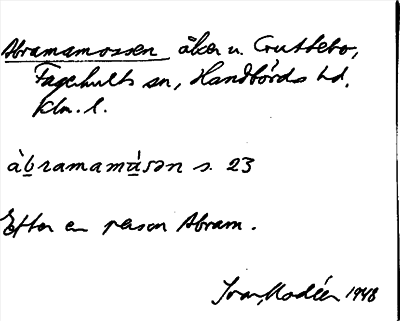 Abramamossen åker u. Cruttebo,
Fagerhults sn, Handbörds hd,
Klm. l.
àbramamásən s. 23
Efter en person Abram.
Ivar Modéer 1948